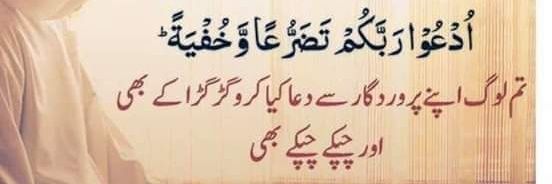 اُدْعُوْا رَبَّكُمْ تَضَرُّعًا وَّ خُفْیَةً ؕ
تم لوگ اپنے پروردگار سے دعا کیا کرو گڑگڑا کے بھی
اور چپکے چپکے بھی